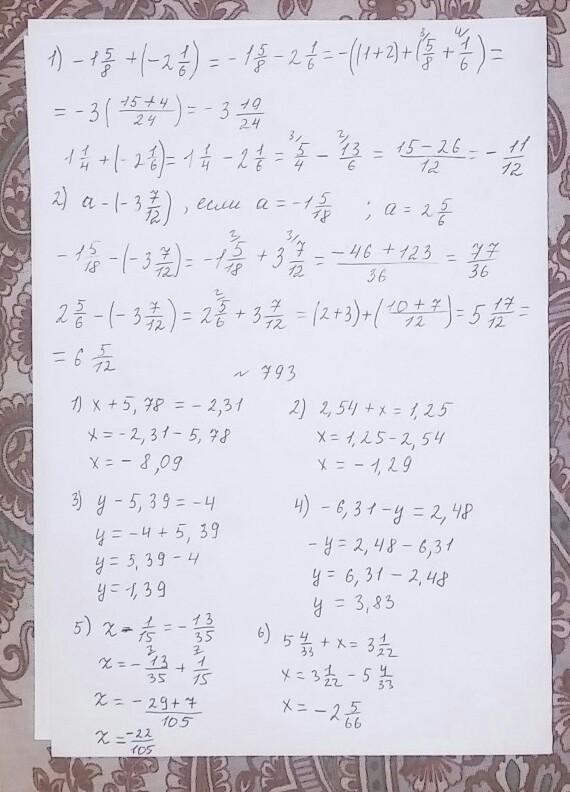 1) -1 5/8 + (-2 1/6) = -1 5/8 - 2 1/6 = -((1+2)+(5/8 + 1/6) =
= -3 (15+4/24) = -3 19/24
1 1/4 + (-2 1/6) = 1 1/4 - 2 1/6 = 5/4 - 13/6 = 15-26/12 = - 11/12
2) a - (-3 7/12), если a = -1 5/18 ; a = 2 5/6
-1 5/18 - (-3 7/12) = -1 5/18 + 3 7/12 = -46 + 123/36 = 77/36
2 5/6 - (-3 7/12) = 2 5/6 + 3 7/12 = (2+3) + (10+7/12) = 5 17/12 =
= 6 5/12
~ 793
1) x + 5,78 = -2,31
x = -2,31 - 5,78
x = -8,09
2) 2,54 + x = 1,25
x = 1,25 - 2,54
x = -1,29
3) y - 5,39 = -4
y = -4 + 5,39
y = 5,39 - 4
y = 1,39
4) -6,31 - y = 2,48
-y = 2,48 - 6,31
y = 6,31 - 2,48
y = 3,83
5) x - 1/15 = - 13/35
x = - 13/35 + 1/15
x = - 29+7/105
x = -22/105
6) 5 4/33 + x = 3 1/22
x = 3 1/22 - 5 4/33
x = -2 5/66